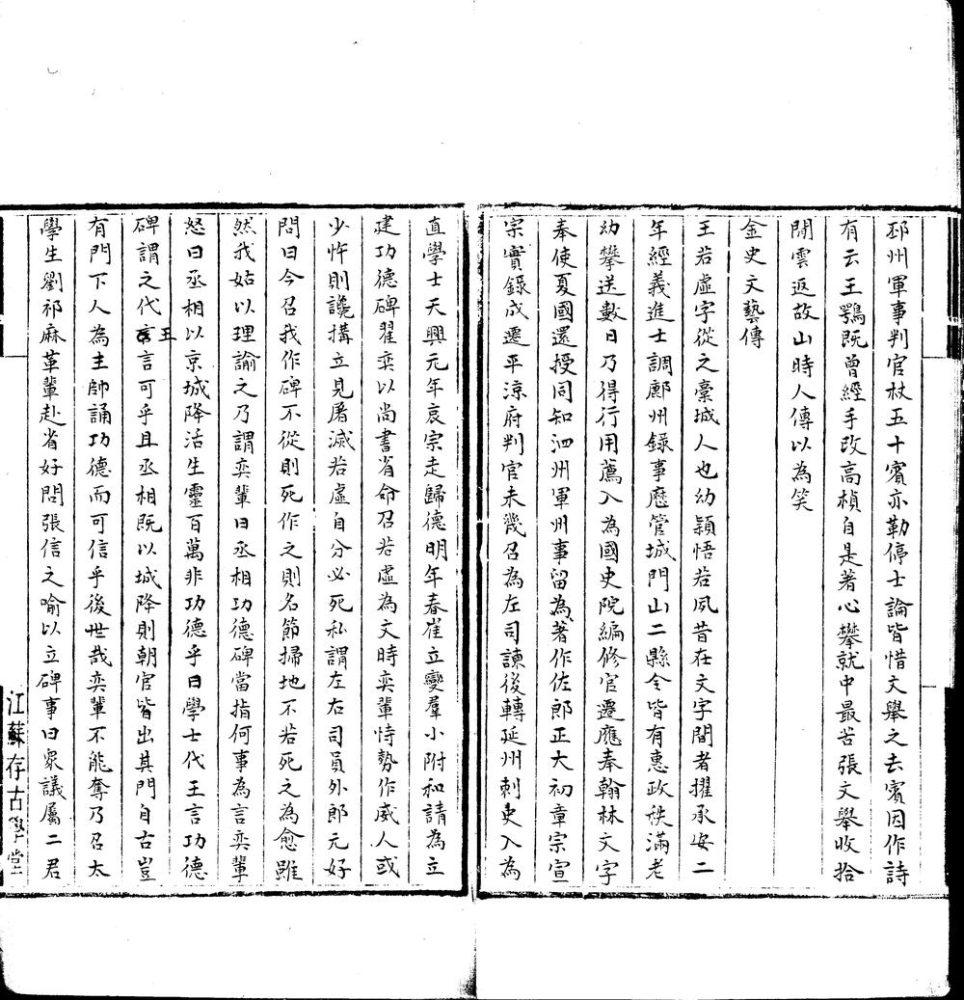 邳州軍事判官杖五十賓亦勒停士論皆惜文舉之去賓因作詩
有云王鶚既曾經手改高楨自是著心攀就中最苦張文舉收拾
閒雲返故山時人傳以為笑
金史文藝傳
王若虛字從之藁城人也幼穎悟若夙昔在文字間者擢承安二
年經義進士調鄜州錄事歷管城門山二縣令皆有惠政秩滿老
幼攀送數日乃得行用薦入為國史院編修官遷應奉翰林文字
奉使夏國還授同知泗州軍州事留為著作佐郎正大初章宗宣
宗實錄成遷平涼府判官未幾召為左司諫後轉延州刺史入為
直學士天興元年哀宗走歸德明年春崔立變羣小附和請為立
建功德碑翟奕以尚書省命召若虛為文時奕輩恃勢作威人或
少忤則讒搆立見屠滅若虛自分必死私謂左右司員外郎元好
問曰今召我作碑不從則死作之則名節掃地不若死之為愈雖
然我姑以理諭之乃謂奕輩曰丞相功德碑當指何事為言奕輩
怒曰丞相以京城降活生靈百萬非功德乎曰學士代王言功德
碑謂之代王言可乎且丞相既以城降則朝官皆出其門自古豈
有門下人為主帥誦功德而可信乎後世哉奕輩不能奪乃召太
學生劉祁麻革輩赴省好問張信之喻以立碑事曰衆議屬二君
江蘇存古學堂